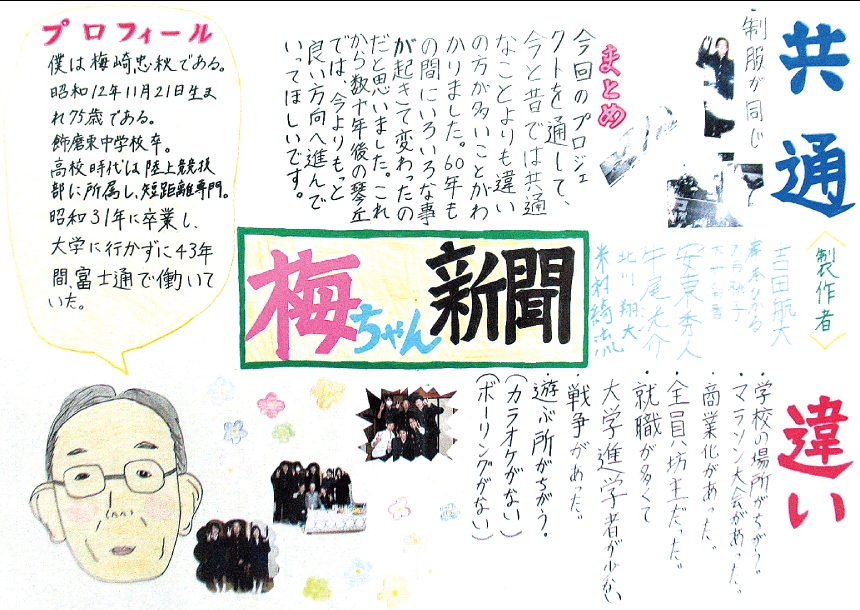 共通
・制服が同じ
まとめ
今回のプロジェ
クトを通して、
今と昔では共通
なことよりも違い
の方が多いことがわ
かりました。60年も
の間にいろいろな事
が起きて変わったの
だと思いました。これ
から数十年後の琴丘
では、今よりもっと
良い方向へ進んで
いってほしいです。
プロフィール
僕は梅崎忠秋である。
昭和12年11月21日生ま
れ75歳である。
飾磨東中学校卒。
高校時代は陸上競技
部に所属し、短距離専門。
昭和31年に卒業し、
大学に行かずに43年
間、富士通で働いて
いた。
梅ちゃん新聞
製作者
吉田航大
安東秀人
牛尾光介
北川翔大
米村綺流
違い
・学校の場所がちがう。
・マラソン大会があった。
・商業化があった。
・全員、坊主だった。
・就職が多くて
大学進学者が少ない
・戦争があった。
・遊ぶ所がちがう。
(カラオケがない)
(ボーリングがない)